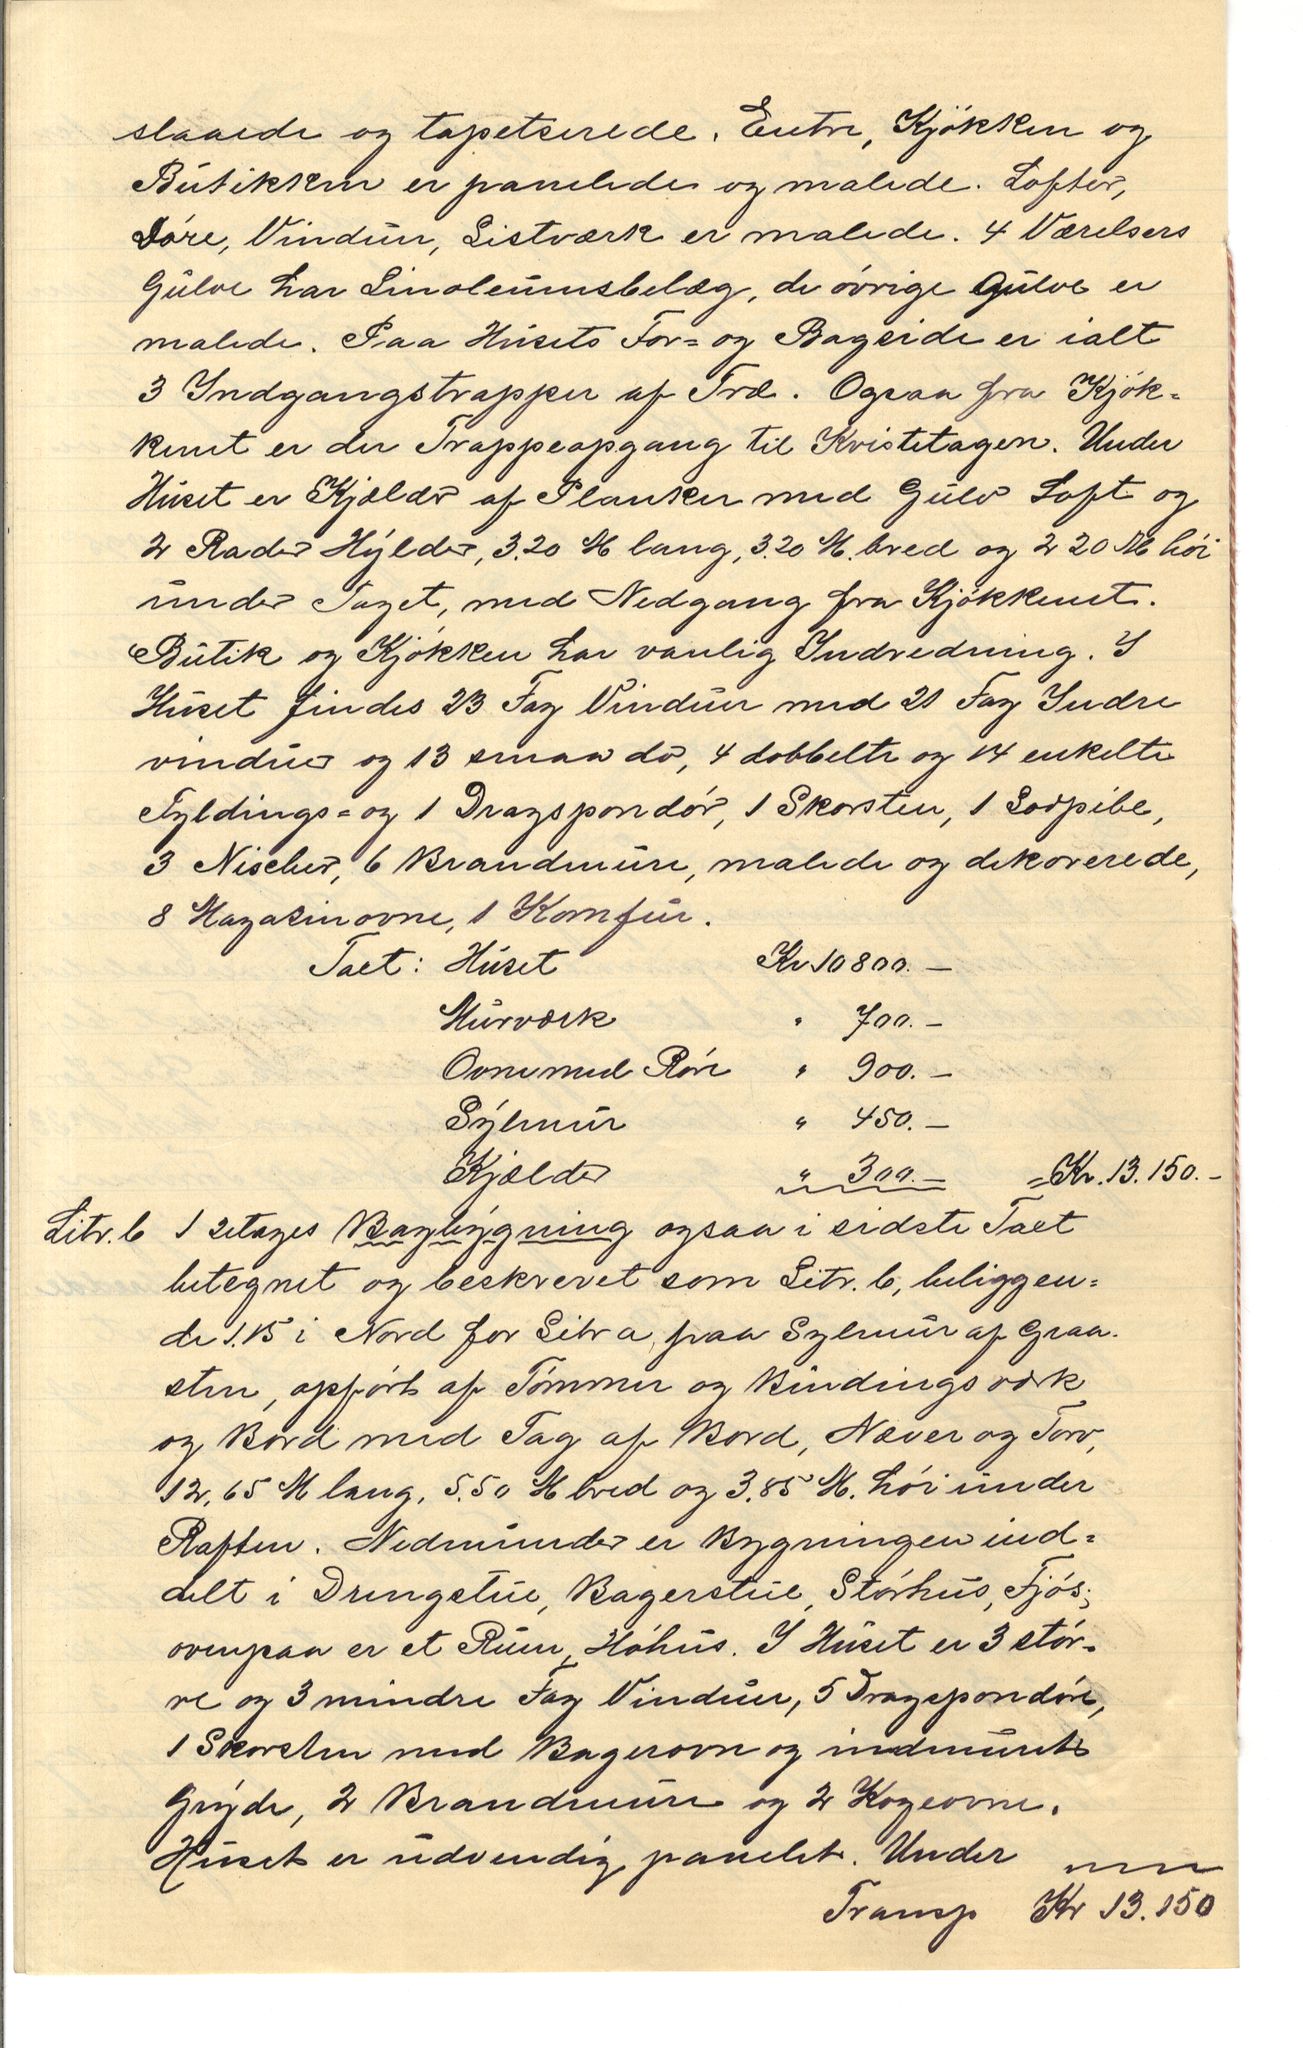 slaaede og tapetserede. Entre, Kjökken og
Butikken er panelede og malede. Lofter,
Döre, Vinduer, Listværk er malede. 4 Værelsers
Gulve har Linoleumsbelæg, de övrige Gulve er
malede. Paa Husets For= og Bagside er ialt
3 Indgangstrapper af Træ. Ogsaa fra Kjök=
kenet er der Trappeopgang til Kvistetagen. Under
Huset er Kjælder af Planker med Gulv Loft og
2 Rader Hylder, 3.20 M lang, 3.20 M. bred og 2 20 M höi
under Taget, med Nedgang fra Kjökkenet.
Butik og Kjökken har vanlig Indredning. I
Huset findes 23 Fag Vinduer med 21 Fag Indre
vinduer og 13 smaa do, 4 dobbelte og 14 enkelte
Fyldings= og 1 Dragspondör, 1 Skorsten, 1 Sodpibe,
3 Nischer, 6 Brandmure, malede og dekorerede,
8 Magasinovne, 1 Komfur.
Taxt: Huset Kr 10800.—
Murværk " 700.—
Ovne med Rör " 900.—
Sylmur " 450.—
Kjælder " 300.— = Kr. 13.150.—
Litr. b 1 etages Bagbygning ogsaa i sidste Taxt
betegnet og beskrevet som Litr. b, beliggen=
de 1.15 i Nord for Litr a, paa Sylmur af Graa=
sten, opfört af Tömmer og Bindingsværk
og Bord med Tag af Bord, Næver og Torv,
12,65 M lang, 5.50 M bred og 3.85 M. höi under
Raften. Nedenunder er Bygningen ind=
delt i Drengstue, Bagerstue, Störhus, Fjös;
ovenpaa er et Rum, Höhus. I Huset er 3 stör=
re og 3 mindre Fag Vinduer, 5 Dragspondöre,
1 Skorsten med Bagerovn og indmuret
Gryde, 2 Brandmure og 2 Kogeovne.
Huset er udvendig panelet. Under
Transp Kr 13.150